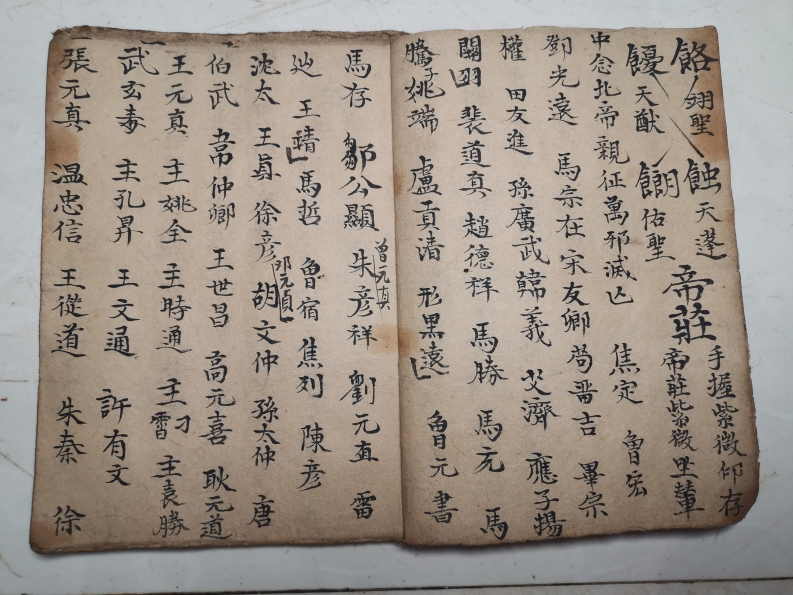 手握紫微仰存
帝莊紫微坐輦
餎 翊聖 蝕 天蓬 帝莊
饅 天猷 餬 佑聖
中念北帝親征萬邪滅亡 焦定 魯宏
鄧光遠 馬宗在 宋友卿 苟晋吉 畢宗
權 田友進 孫廣武 韓義 艾濟 應子揚
關羽 裴道真 趙德祥 馬勝 馬充 馬
騰子 姚端 盧貢清 形黑遠 魯元書
馬存 鄒公顯 朱彦祥 劉元直 雷
曾元真
王靖 馬哲 魯宿 焦列 陳彦
沈太 王真 徐彦 胡文仲 孫太仲 唐
卭元貞
伯武 韋仲卿 王世昌 高元喜 耿元道
王元真 主姚全 主時通 主雷刁 主袁勝
武玄毒 主孔昇 王文通 許有文
張元真 温忠信 王從道 朱秦 徐